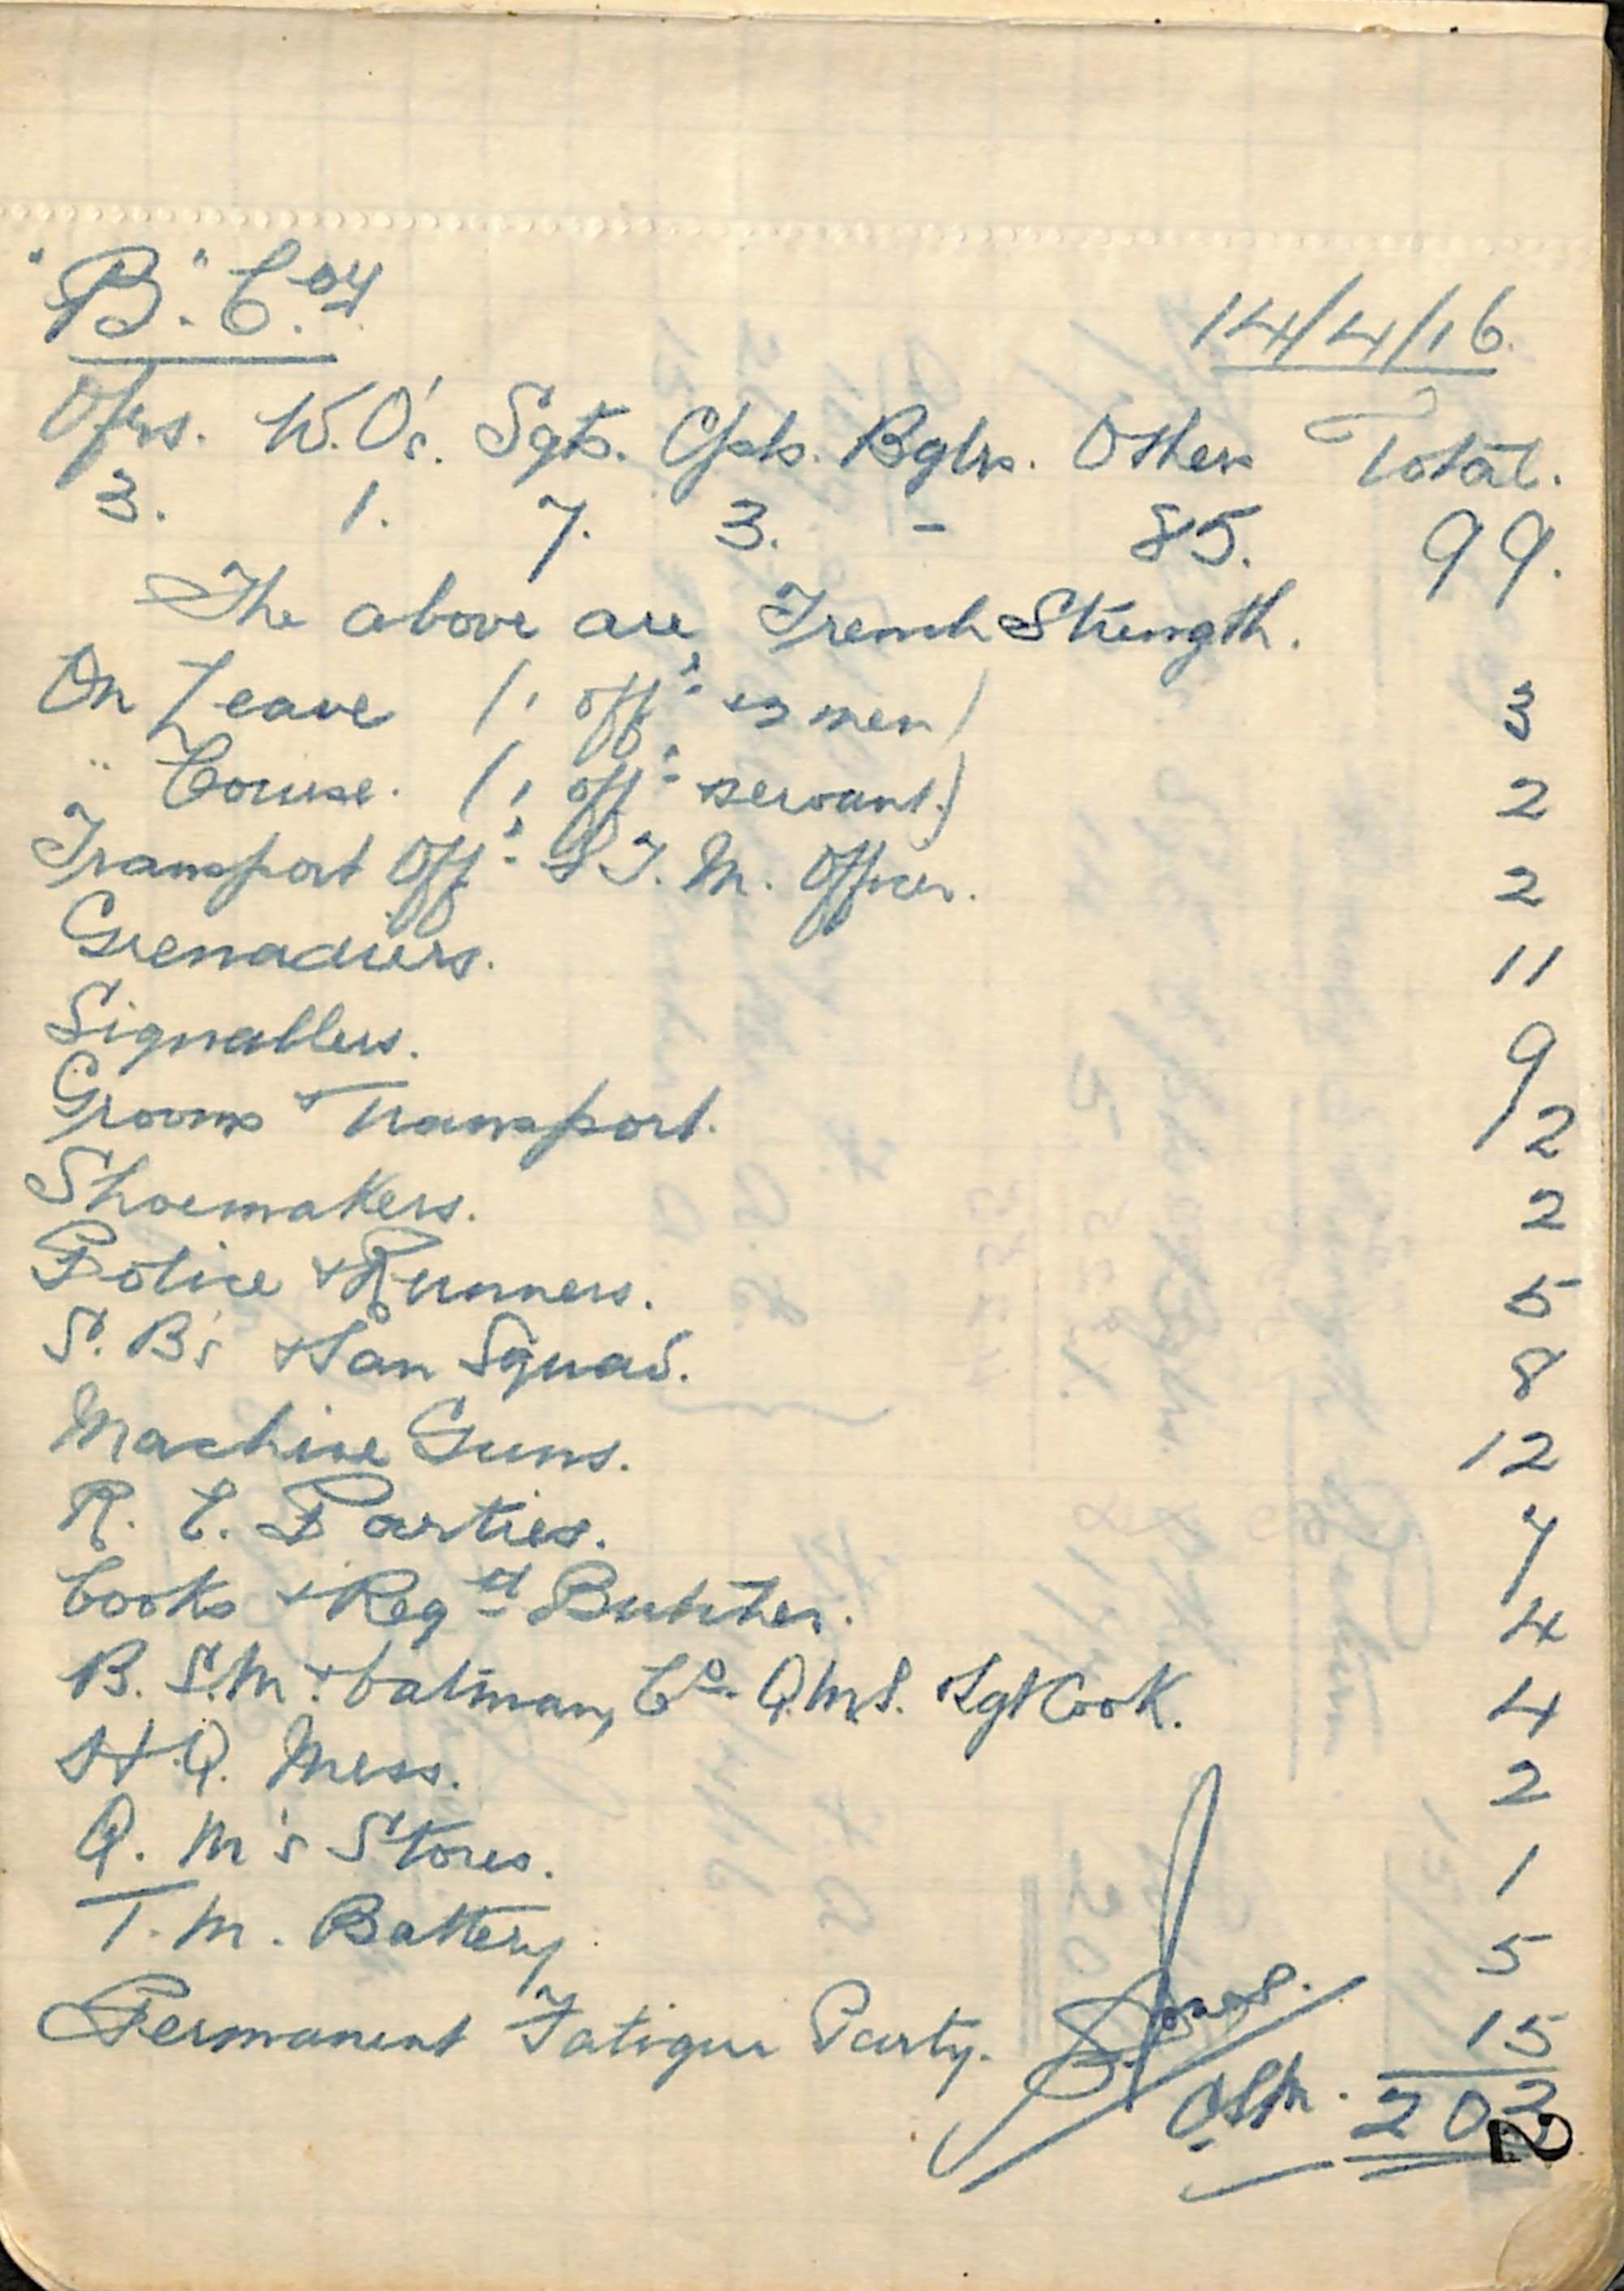 "B". Coy. 14/4/16.
Ofrs. W.O's. Sgts. Cpls. Bglrs. Others Total.
3. 1. 7. 3. - 85. 99.
The above are Trench Strength.
On Leave (1 offr. & 2 men) 3
" Course. (1 offr. & servant.) 2
Transport Offr. & T.M. Officer. 2
Grenadiers. 11
Signallers. 9
Grooms & Transport. 12
Shoemakers. 2
Police & Runners. 5
S.B's & San Squad. 8
Machine Guns. 12
R.E. Parties. 7
Cooks & Regtl Butcher. 4
B.S.M. & batman, Co. Q.M.S. & Sgt Cook. 4
H.Q. Mess. 2
Q.M's Stores. 1
T.M. Battery 5
Permanent Fatigue Party. 15
Jones. 
CSM. 203
2